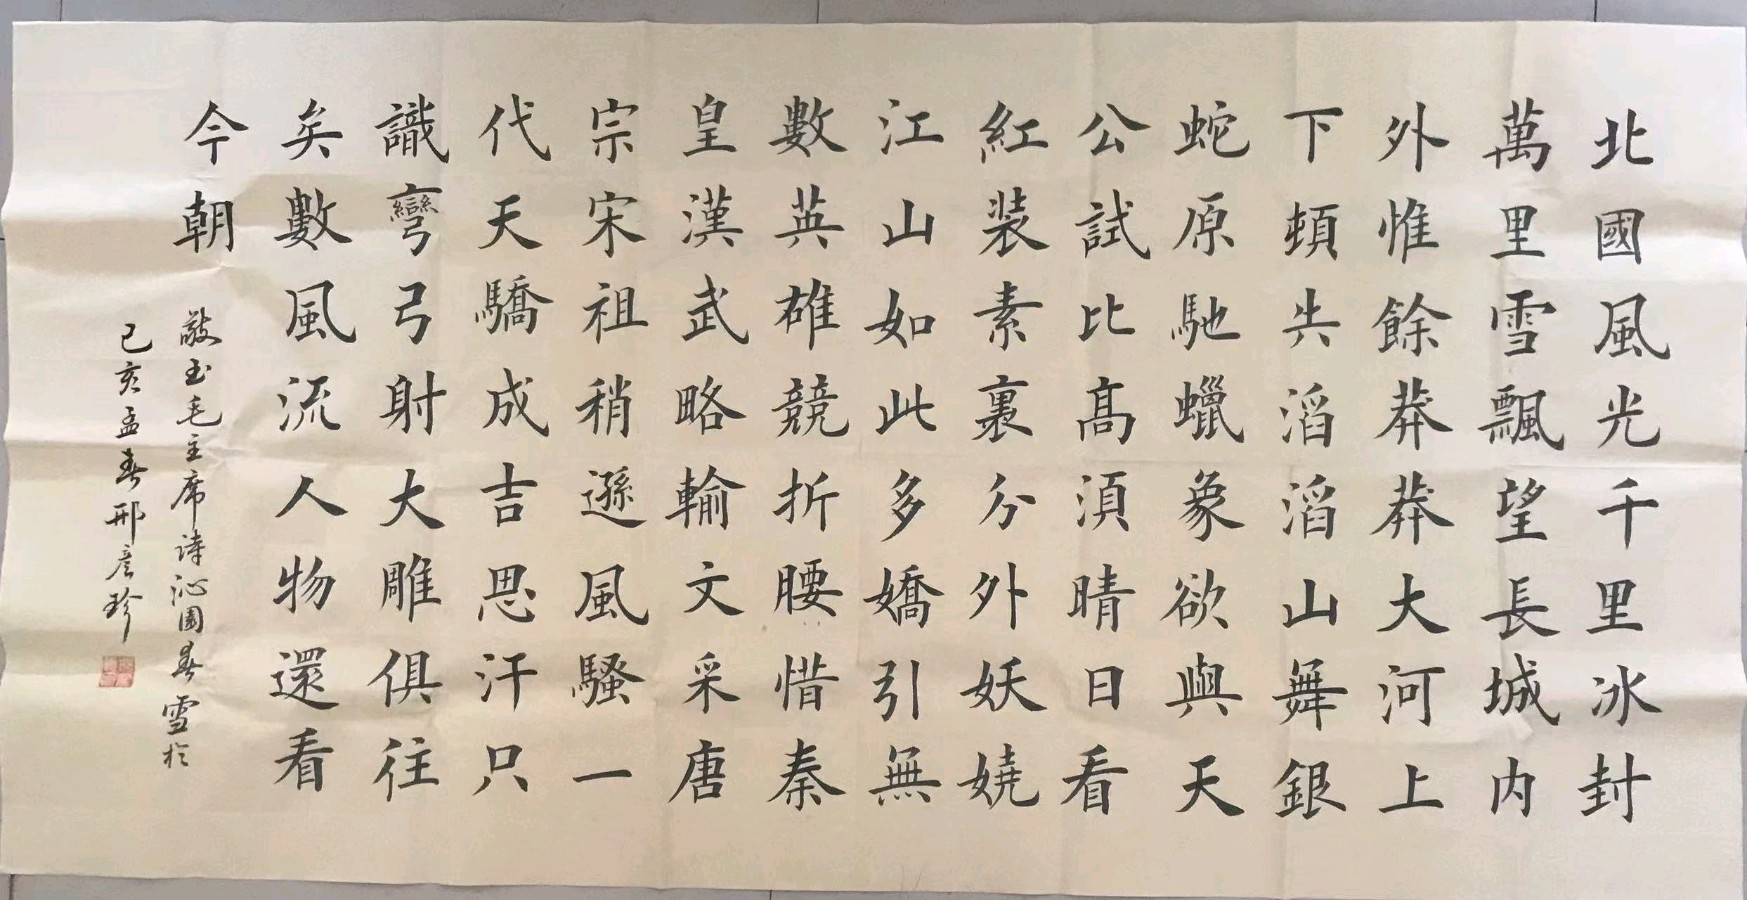 北國風光千里冰封
萬里雪飄望長城内
外惟餘莽莽大河上
下頓失滔滔山舞銀
蛇原馳蠟象欲與天
公試比高須晴日看
紅装素裹分外妖嬈
江山如此多嬌引無
數英雄競折腰惜秦
皇漢武略輸文采唐
宗宋祖稍遜風騷一
代天驕成吉思汗只
識彎弓射大雕俱往
矣數風流人物還看
今朝
敬書毛主席詩沁園春雪於
己亥孟春邢彦珍